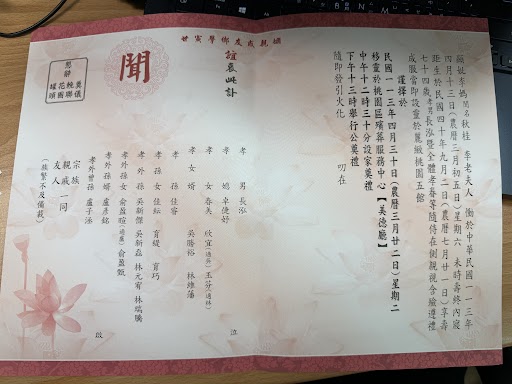 顯妣李媽閨名秋桂 李老夫人 慟於中華民國一一三年
四月十三日(農曆三月初五日)星期六 未時壽終內寢
距生於民國四十年九月二日(農曆七月廿一日)享壽
七十四歲孝男長泓暨全體孝眷等隨侍在側親視含殮遵禮
成服當即設靈於麗緻桃園五館
謹擇於
民國一一三年四月三十日(農曆三月廿二日)星期二
移靈於桃園區殯葬服務中心【美德廳】
中午十二時三十分設家奠禮
下午十三時舉行公奠禮
隨即發引火化 叨在
姻親戚友鄉學寅世
誼哀此訃
聞
懇辭
奠儀
輓聯
花圈
罐頭
孝男 長泓
孝媳 卓倢妤
孝女 春美 欣宜(適吳) 玉芬(適林)
孝女婿 吳勝裕 林維藩
孝孫 佳容
孝孫女 佳紜 育緹 育巧
孝外孫 吳新傑 吳新磊 林元宥 林瑞騰
孝外孫女 俞盈暄(適盧) 俞盈甄
孝外孫婿 盧彥銘
孝外曾孫 盧子涵
泣
宗族
親戚
友人
一同
(族繁不及備載)
啟